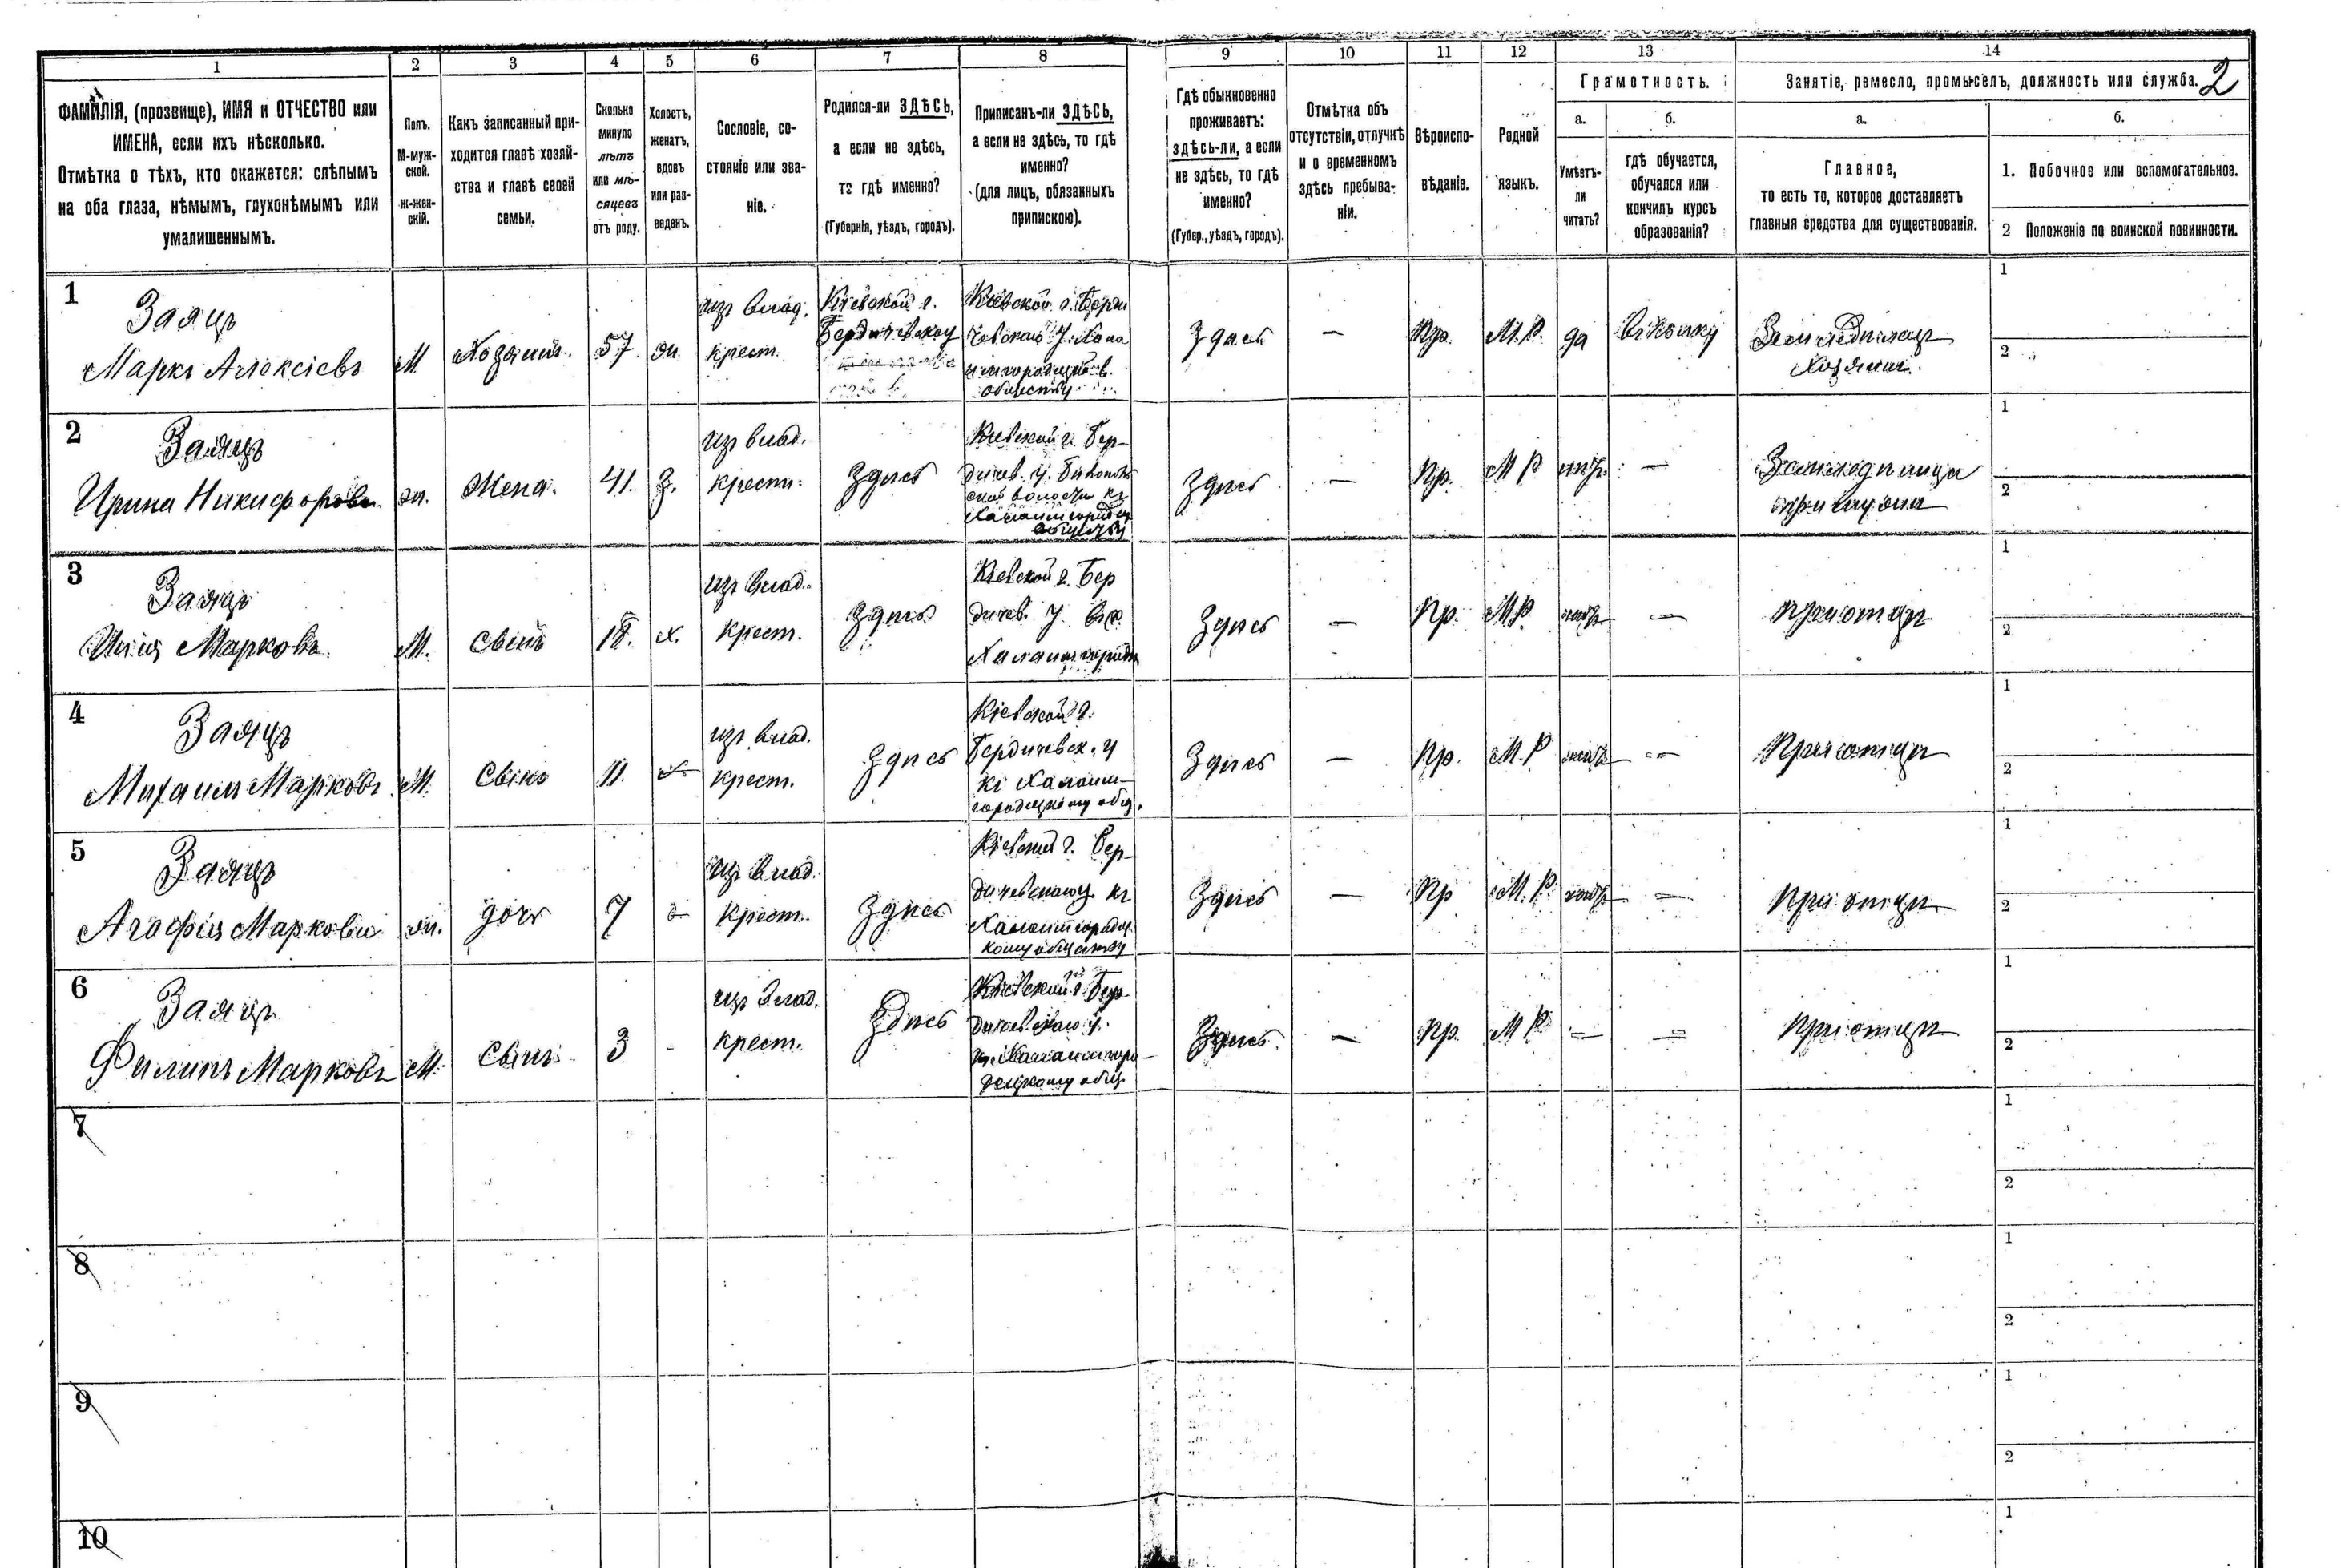 1
2
3
4
5
6
7
8
9
10
11
12
13
14
ФАМИЛІЯ, (прозвище), ИМЯ и ОТЧЕСТВО или
ИМЕНА, если ихъ нѣсколько.
Отмѣтка о тѣхъ, кто окажется: слѣпымъ
на оба глаза, нѣмымъ, глухонѣмымъ или
умалишеннымъ.
Полъ.
М-муж-
ской.
ж-жен-
скій.
Какъ записанный при-
ходится главѣ хозяй-
ства и главѣ своей
семьи.
Сколько
минуло
лѣтъ
или мѣ-
сяцевъ
отъ роду.
Холостъ,
женатъ,
вдовъ
или раз-
веденъ.
Сословіе, со-
стояніе или зва-
ніе.
Родился-ли ЗДѢСЬ,
а если не здѣсь,
то гдѣ именно?
(Губернія, уѣздъ, городъ).
Приписанъ-ли ЗДѢСЬ,
а если не здѣсь, то гдѣ
именно?
(для лицъ, обязанныхъ
припискою).
Гдѣ обыкновенно
проживаетъ:
здѣсь-ли, а если
не здѣсь, то гдѣ
именно?
(Губер., уѣздъ, городъ).
Отмѣтка объ
отсутствіи, отлучкѣ
и о временномъ
здѣсь пребыва-
ніи.
Вѣроиспо-
вѣданіе.
Родной
языкъ.
Грамотность.
а.
Умѣетъ-
ли
читать?
б.
гдѣ обучается,
обучался или
кончилъ курсъ
образованія?
Занятіе, ремесло, промыселъ, должность или служба.
2
а.
Главное,
то есть то, которое доставляетъ
главныя средства для существованія.
б.
1. Побочное или вспомогательное.
2 Положеніе по воинской повинности.
1
Заяцъ
Маркъ Алексіевъ
М
Хозяинъ.
57.
ж.
изъ влад.
крест.
Кіевской г.
Бердичевскоу
Кіевской г. Берди
чевскаго у.
обществу
Здѣсь
—
Пр.
М.Р.
да
Земледѣлецъ
Хозяинъ.
1
2
2
Заяцъ
Ирина Никифорова
ж.
Жена.
41.
З.
изъ влад.
крест.
Здѣсь
Кіевской г. Бер-
дичев. у.
волости къ
обществу
Здѣсь
—
Пр.
М Р
нѣтъ
—
1
2
3
Заяцъ
Илія Марковъ
М.
Свінъ
18.
х.
изъ влад.
крест.
Здѣсь
Кіевской г. Бер
дичев. у.
Здѣсь
—
Пр.
М.Р.
нѣтъ
—
при отцѣ
1
2
4
Заяцъ
Михаилъ Марковъ
М.
Свінъ
11.
х
изъ влад.
крест.
Здѣсь
Кіевской г.
Бердичевск. у
къ Халаим-
городецкому общ.
Здѣсь
—
Пр.
М.Р
нѣтъ
—
При отцѣ
1
2
5
Заяцъ
Агафія Маркова
ж.
дочь
7
изъ влад.
Крест.
Здѣсь
Кіевской г. Бер-
дичевскаго у. къ
Халаимгородец.
кому обществу
Здѣсь
—
Пр
М.Р.
нѣтъ
—
При отцѣ
1
2
6
Заяцъ
Филипъ Марковъ
М.
Свінъ
3
-
изъ влад.
крест.
Здѣсь
Кіевской г. Бер-
дичевскаго у.
къ Халаимгоро-
децкому общ.
Здѣсь.
—
Пр.
М Р
—
—
При отцѣ
1
2
7
1
2
8
1
2
9
1
2
10
1